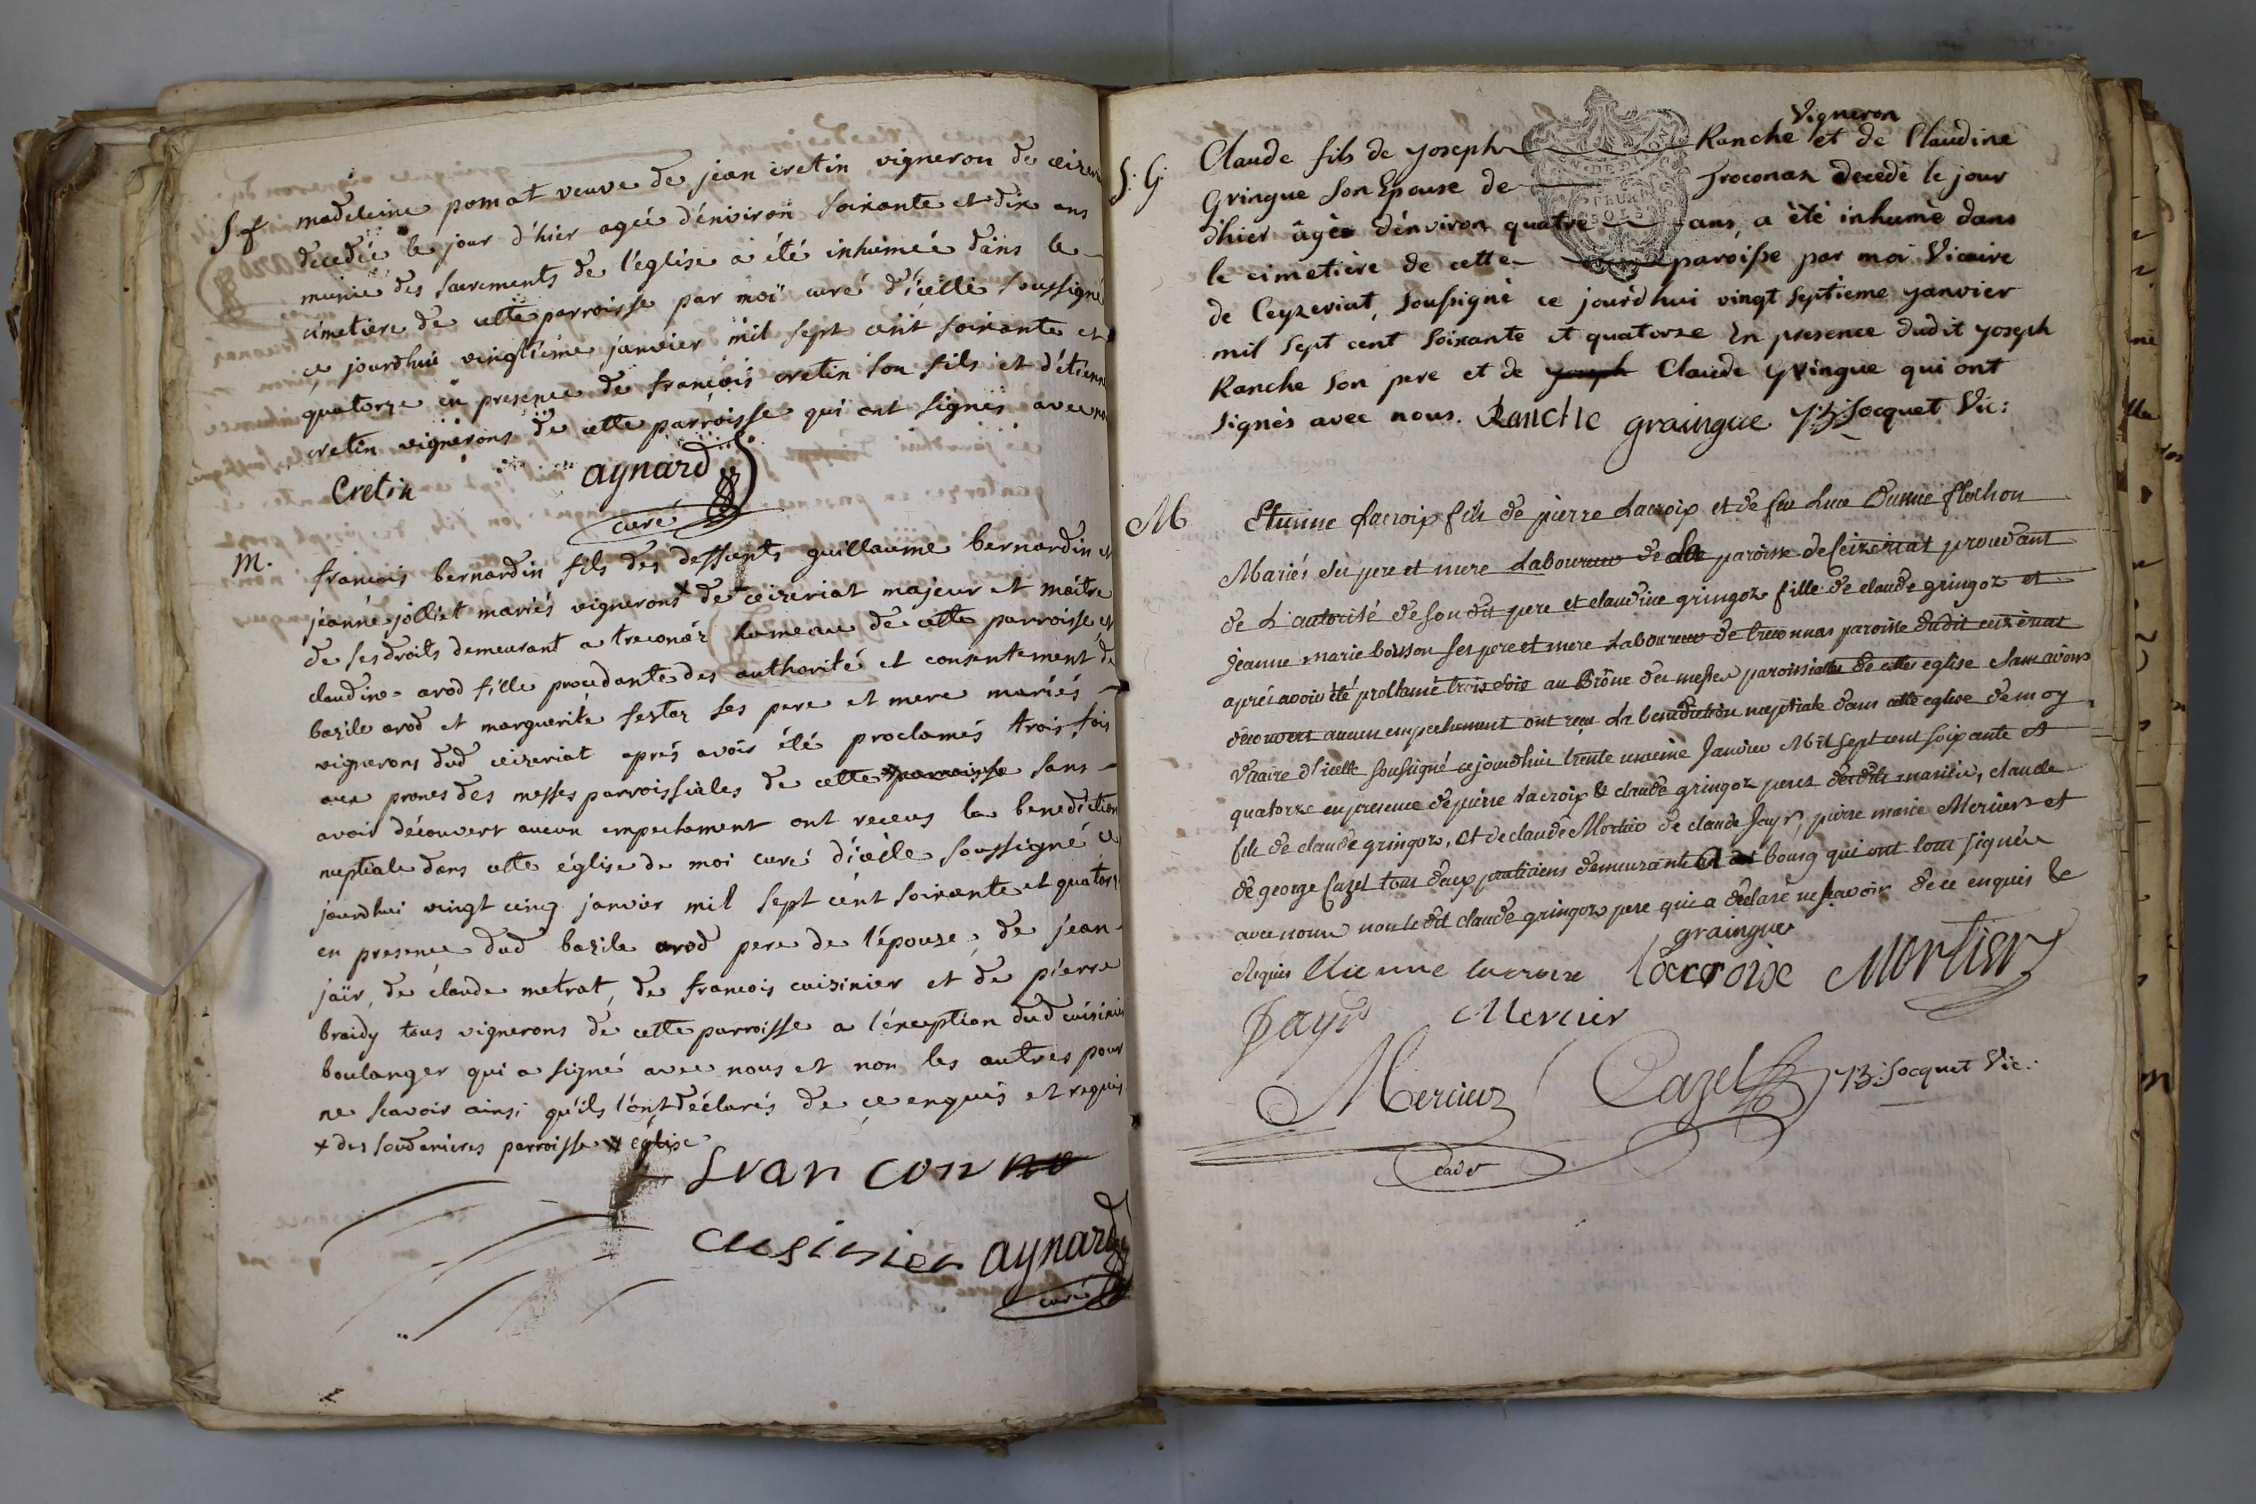 S f madeleine pomat veuve de jean cretin vigneron de ceizeri
decedée le jour d'hier agée d'environ soixante et dix ans
munie des sacrements de l'église a été inhumée dans le
cimetiere de cette parroisse par moi curé d'icelle soussigné
ce jourdhui vingtième janvier mil sept cent soixante et
quatorze en presence de françois cretin son fils et d'étienne
cretin vignerons de cette parroisse qui ont signés avec no
Cretin aynard
curé
M. francois bernardin fils des deffunts guillaume bernardin et
jeanne jolliet mariés vignerons x de ceizeriat majeur et maître
de ses droits demeurant a treconaz hameau de cette parroisse et
claudine arod fille procedante des authorité et consentement de
bazile arod et marguerite festaz ses pere et mere mariés
vignerons dud ceizeriat aprés avoir été proclamés trois fois
aux prones des messes parroissiales de cette parroisse sans
avoir découvert aucun empechement ont receus la benediction
nuptiale dans cette église de moi curé d'icèle soussigné ce
jourdhui vingt cinq janvier mil sept cent soixante et quatorz
en presence dud bazile arod pere de l'épouse, de jean
jaïr, de claude metrat, de francois cuisinier et de pierre
braidy tous vignerons de cette parroisse a l'éxception dud cuisinier
boulanger qui a signé avec nous et non les autres pour
ne scavoir ainsi qu'ils l'ont déclarés de ce enquis et requis
x des soudanieres parroisse x eglise
cusinier aynard
curé
Vigneron
S. G. Claude fils de Joseph Ranche et de Claudine
Gringue son Epouse de Troconaz decedé le jour
d'hier âgée d'environ quatre ans, a été inhumé dans
le cimetière de cette paroisse par moi Vicaire
de Ceyzeriat, soussigné ce jourd'hui vingt septieme janvier
mil sept cent soixante et quatorze En presence dudit joseph
Ranche son pere et de joseph Claude gringue qui ont
signés avec nous. Ranche graingue JB: Jocquet Vic:
M Etienne Lacroix fils de pierre Lacroix et de feu Luce Danne flochon
Mariés ses pere et mere Laboureur de la paroisse de Ceizeriat procedant
de L'autorité de son dit pere et claudine gringoz fille de claude gringoz et
jeanne marie boisson ses pere et mere Laboureur de treconnas paroisse dudit ceizériat
aprés avoir été proclamé trois fois au Prône des messes paroissialles de cette eglise sans avoir
découvert aucun empechement ont reçu La benediction nuptiale dans cette eglise de moy
Vicaire d'icelle soussigné cejourdhui trente unieme Janvier Mil Sept cent soixante et
quatorze en presence de pierre Lacroix & claude gringoz peres desdits mariés, claude
fils de claude gringoz, et de claude Mortier de claude Jayr, pierre marie Mercier et
de george Cazel tous deux praticiens demeurants a bourg qui ont tous signés
avec nous non ledit claude gringoz pere qui a déclaré ne scavoir de ce enquis &
requis Etienne lacroix graingue lacroix Mortier
Jayr Mercier
Mercier Cazel JB: Jocquet Vic:
cadet